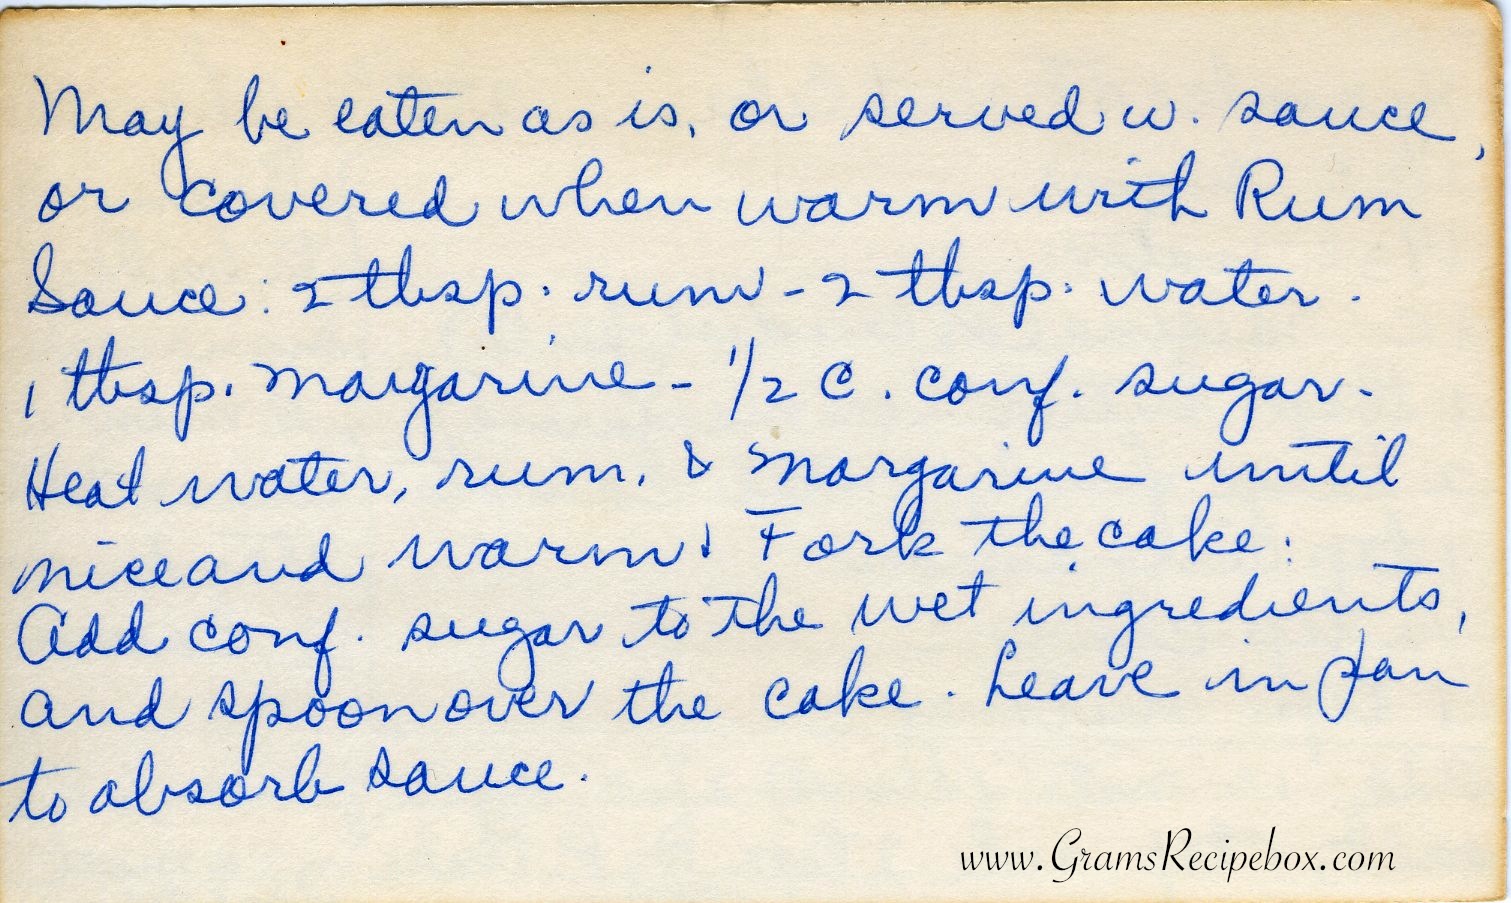 May be eaten as is, or served w. sauce,
or covered when warm with Rum
Sauce: 2 tbsp. rum - 2 tbsp. water.
1 tbsp. margarine - 1/2 c. conf. sugar.
Heat water, rum, & margarine until
nice and warm! Fork the cake.
Add conf. sugar to the wet ingredients,
and spoon over the cake. Leave in pan
to absorb sauce.
www.GramsRecipebox.com